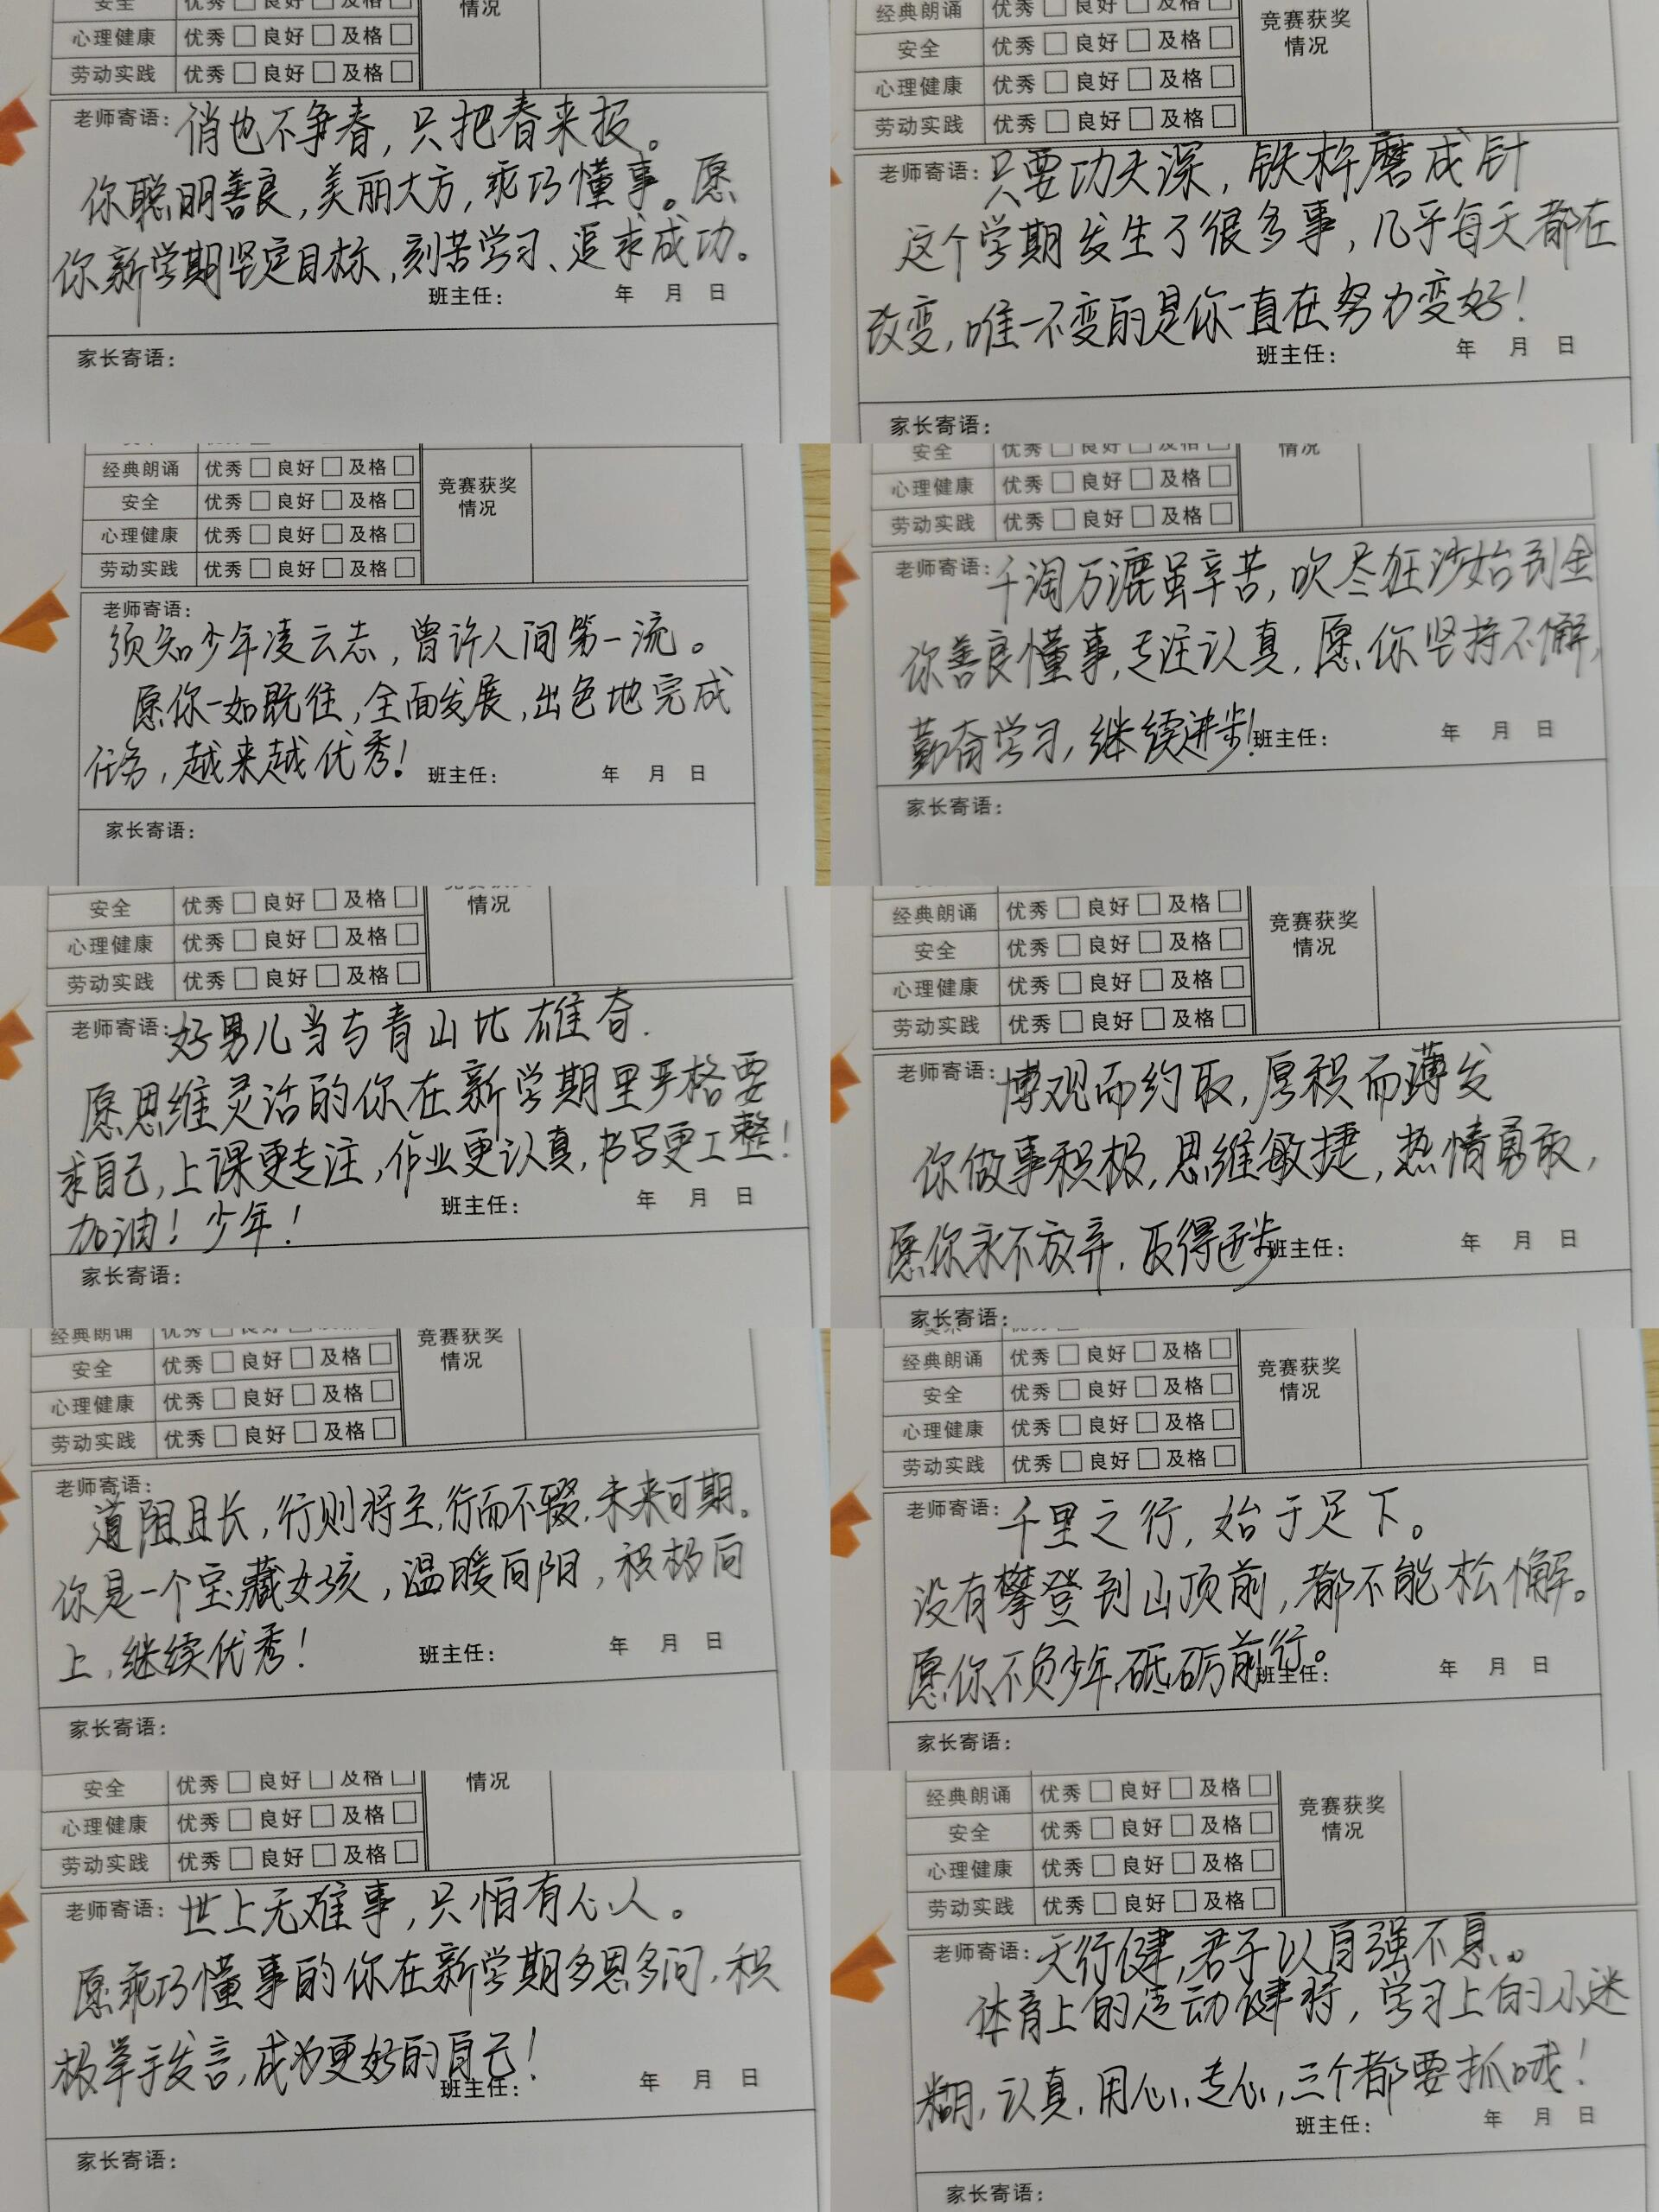 安全 优秀□ 良好□ 及格□ 情况
心理健康 优秀□ 良好□ 及格□
劳动实践 优秀□ 良好□ 及格□
老师寄语：俏也不争春，只把春来报。
你聪明善良，美丽大方，乖巧懂事。愿
你新学期坚定目标，刻苦学习、追求成功。
班主任： 年 月 日
家长寄语：
经典朗诵 优秀□ 良好□ 及格□ 竞赛获奖
安全 优秀□ 良好□ 及格□ 情况
心理健康 优秀□ 良好□ 及格□
劳动实践 优秀□ 良好□ 及格□
老师寄语：只要功夫深，铁杵磨成针
这个学期发生了很多事，几乎每天都在
改变，唯一不变的是你一直在努力变好！
班主任： 年 月 日
家长寄语：
经典朗诵 优秀□ 良好□ 及格□ 竞赛获奖
安全 优秀□ 良好□ 及格□ 情况
心理健康 优秀□ 良好□ 及格□
劳动实践 优秀□ 良好□ 及格□
老师寄语：
须知少年凌云志，曾许人间第一流。
愿你一如既往，全面发展，出色地完成
任务，越来越优秀！
班主任： 年 月 日
家长寄语：
安全 优秀□ 良好□ 及格□ 情况
心理健康 优秀□ 良好□ 及格□
劳动实践 优秀□ 良好□ 及格□
老师寄语：千淘万漉虽辛苦，吹尽狂沙始到金
你善良懂事，专注认真，愿你坚持不懈，
勤奋学习，继续进步！
班主任： 年 月 日
家长寄语：
竞赛获奖
安全 优秀□ 良好□ 及格□ 情况
心理健康 优秀□ 良好□ 及格□
劳动实践 优秀□ 良好□ 及格□
老师寄语：好男儿当与青山比雄奇.
愿思维灵活的你在新学期里严格要
求自己，上课更专注，作业更认真，书写更工整！
加油！少年！
班主任： 年 月 日
家长寄语：
经典朗诵 优秀□ 良好□ 及格□ 竞赛获奖
安全 优秀□ 良好□ 及格□ 情况
心理健康 优秀□ 良好□ 及格□
劳动实践 优秀□ 良好□ 及格□
老师寄语：博观而约取，厚积而薄发
你做事积极，思维敏捷，热情勇敢，
愿你永不放弃，取得进步
班主任： 年 月 日
家长寄语：
经典朗诵 优秀□ 良好□ 及格□ 竞赛获奖
安全 优秀□ 良好□ 及格□ 情况
心理健康 优秀□ 良好□ 及格□
劳动实践 优秀□ 良好□ 及格□
老师寄语：
道阻且长，行则将至，行而不辍，未来可期。
你是一个宝藏女孩，温暖向阳，积极向
上，继续优秀！
班主任： 年 月 日
家长寄语：
美术
经典朗诵 优秀□ 良好□ 及格□ 竞赛获奖
安全 优秀□ 良好□ 及格□ 情况
心理健康 优秀□ 良好□ 及格□
劳动实践 优秀□ 良好□ 及格□
老师寄语：千里之行，始于足下。
没有攀登到山顶前，都不能松懈。
愿你不负少年，砥砺前行。
班主任： 年 月 日
家长寄语：
安全 优秀□ 良好□ 及格□ 情况
心理健康 优秀□ 良好□ 及格□
劳动实践 优秀□ 良好□ 及格□
老师寄语：世上无难事，只怕有心人。
愿乖巧懂事的你在新学期多思多问，积
极举手发言，成为更好的自己！
班主任： 年 月 日
家长寄语：
经典朗诵 优秀□ 良好□ 及格□ 竞赛获奖
安全 优秀□ 良好□ 及格□ 情况
心理健康 优秀□ 良好□ 及格□
劳动实践 优秀□ 良好□ 及格□
老师寄语：天行健，君子以自强不息。
体育上的运动健将，学习上的小迷
糊，认真，用心，专心，三个都要抓哦！
班主任： 年 月 日
家长寄语：